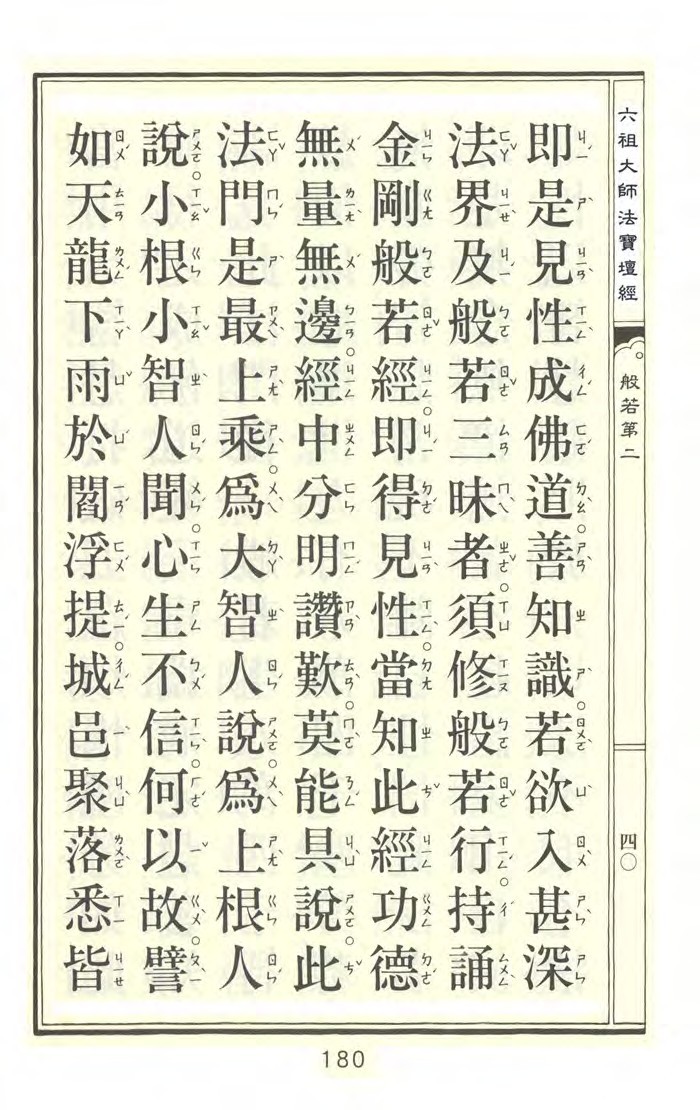 六祖大師法寶壇經
般若第二
四〇
即是見性成佛道。善知識。若欲入甚深
法界及般若三昧者。須修般若行。持誦
金剛般若經。即得見性。當知此經功德
無量無邊。經中分明讚歎。莫能具說。此
法門是最上乘。爲大智人說。爲上根人
說。小根小智人聞。心生不信。何以故。譬
如天龍下雨於閻浮提。城邑聚落悉皆
180